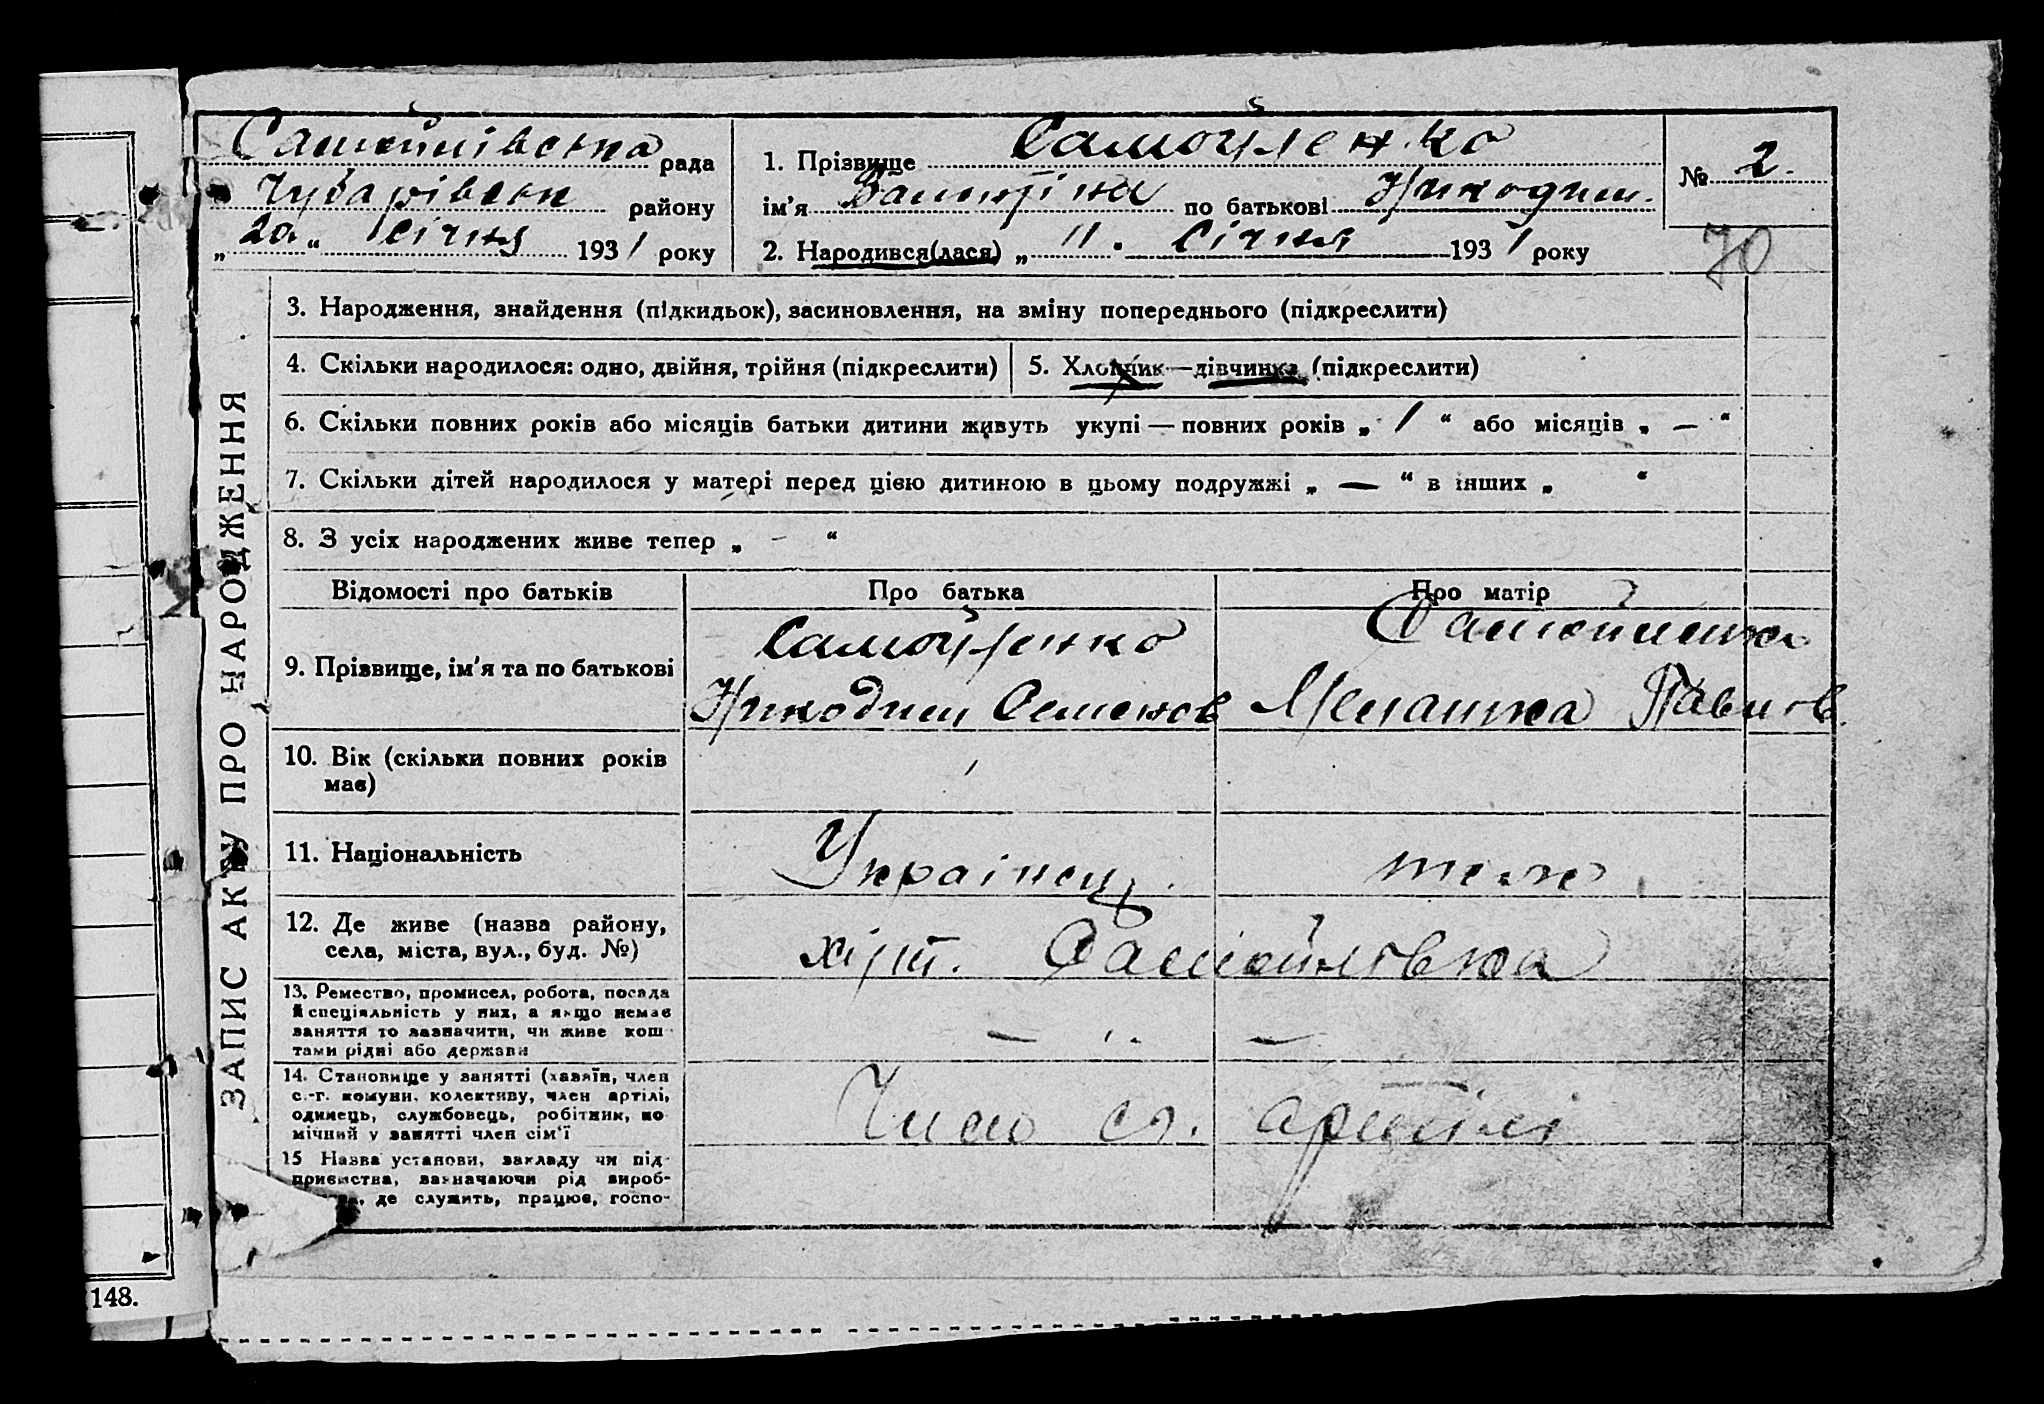 Самойлівська рада
Чубарівськ району
„20“ Січня 1931 року
1. Прізвище Самойленко
ім'я по батькові Никодим.
2. Народився(лася) „11. Січня 1931 року
№ 2.
70
ЗАПИС АКТУ ПРО НАРОДЖЕННЯ
3. Народження, знайдення (підкидьок), засиновлення, на зміну попереднього (підкреслити)
4. Скільки народилося: одно, двійня, трійня (підкреслити)
5. Хлопчик—дівчинка (підкреслити)
6. Скільки повних років або місяців батьки дитини живуть укупі — повних років „ 1 “ або місяців „ — “
7. Скільки дітей народилося у матері перед цією дитиною в цьому подружжі „ — “ в інших „ “
8. З усіх народжених живе тепер „ - “
Відомості про батьків
Про батька
Про матір
9. Прізвище, ім'я та по батькові
Самойленко
Никодим Семенов
Самойленко
Меланка Павлов.
10. Вік (скільки повних років
має)
11. Національність
Українец.
тоже
12. Де живе (назва району,
села, міста, вул., буд. №)
хут. Самойлівка
13. Ремество, промисел, робота, посада
й спеціяльність у них, а якщо немає
заняття то зазначити, чи живе кош-
тами рідні або держави
— —
14. Становище у занятті (хазяїн, член
с.-г. комуни, колективу, член артілі,
одинець, службовець, робітник, по-
мічний у занятті член сім'ї
Член с. артілі
15 Назва установи, закладу чи під-
приємства, зазначаючи рід вироб-
де служить, працює, госпо-
148.